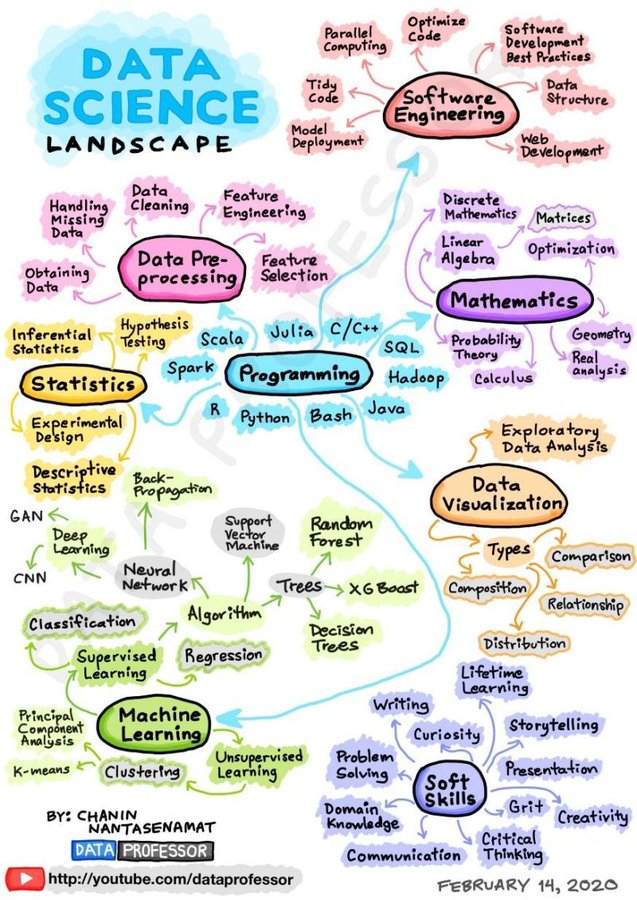 DATA
SCIENCE
LANDSCAPE
Parallel
Computing
Optimize
Code
Software
Development
Best Practices
Tidy
Code
Software
Engineering
Data
Structure
Model
Deployment
Web
Development
Handling
Missing
Data
Data
Cleaning
Feature
Engineering
Obtaining
Data
Data Pre-
processing
Feature
Selection
Discrete
Mathematics
Matrices
Linear
Algebra
Optimization
Mathematics
Probability
Theory
Geometry
Calculus
Real
analysis
Inferential
Statistics
Hypothesis
Testing
Statistics
Experimental
Design
Descriptive
Statistics
Scala
Julia
C/C++
SQL
Spark
Programming
Hadoop
R
Python
Bash
Java
Exploratory
Data Analysis
Data
Visualization
Types
Comparison
Composition
Relationship
Distribution
Back-
Propagation
GAN
Deep
Learning
CNN
Neural
Network
Support
Vector
Machine
Random
Forest
Algorithm
Trees
XG Boost
Decision
Trees
Classification
Supervised
Learning
Regression
Machine
Learning
Principal
Component
Analysis
K-means
Clustering
Unsupervised
Learning
Lifetime
Learning
Writing
Curiosity
Storytelling
Problem
Solving
Soft
Skills
Presentation
Domain
Knowledge
Grit
Creativity
Communication
Critical
Thinking
BY: CHANIN
NANTASENAMAT
DATA PROFESSOR
http://youtube.com/dataprofessor
FEBRUARY 14, 2020
DATA PROFESSOR